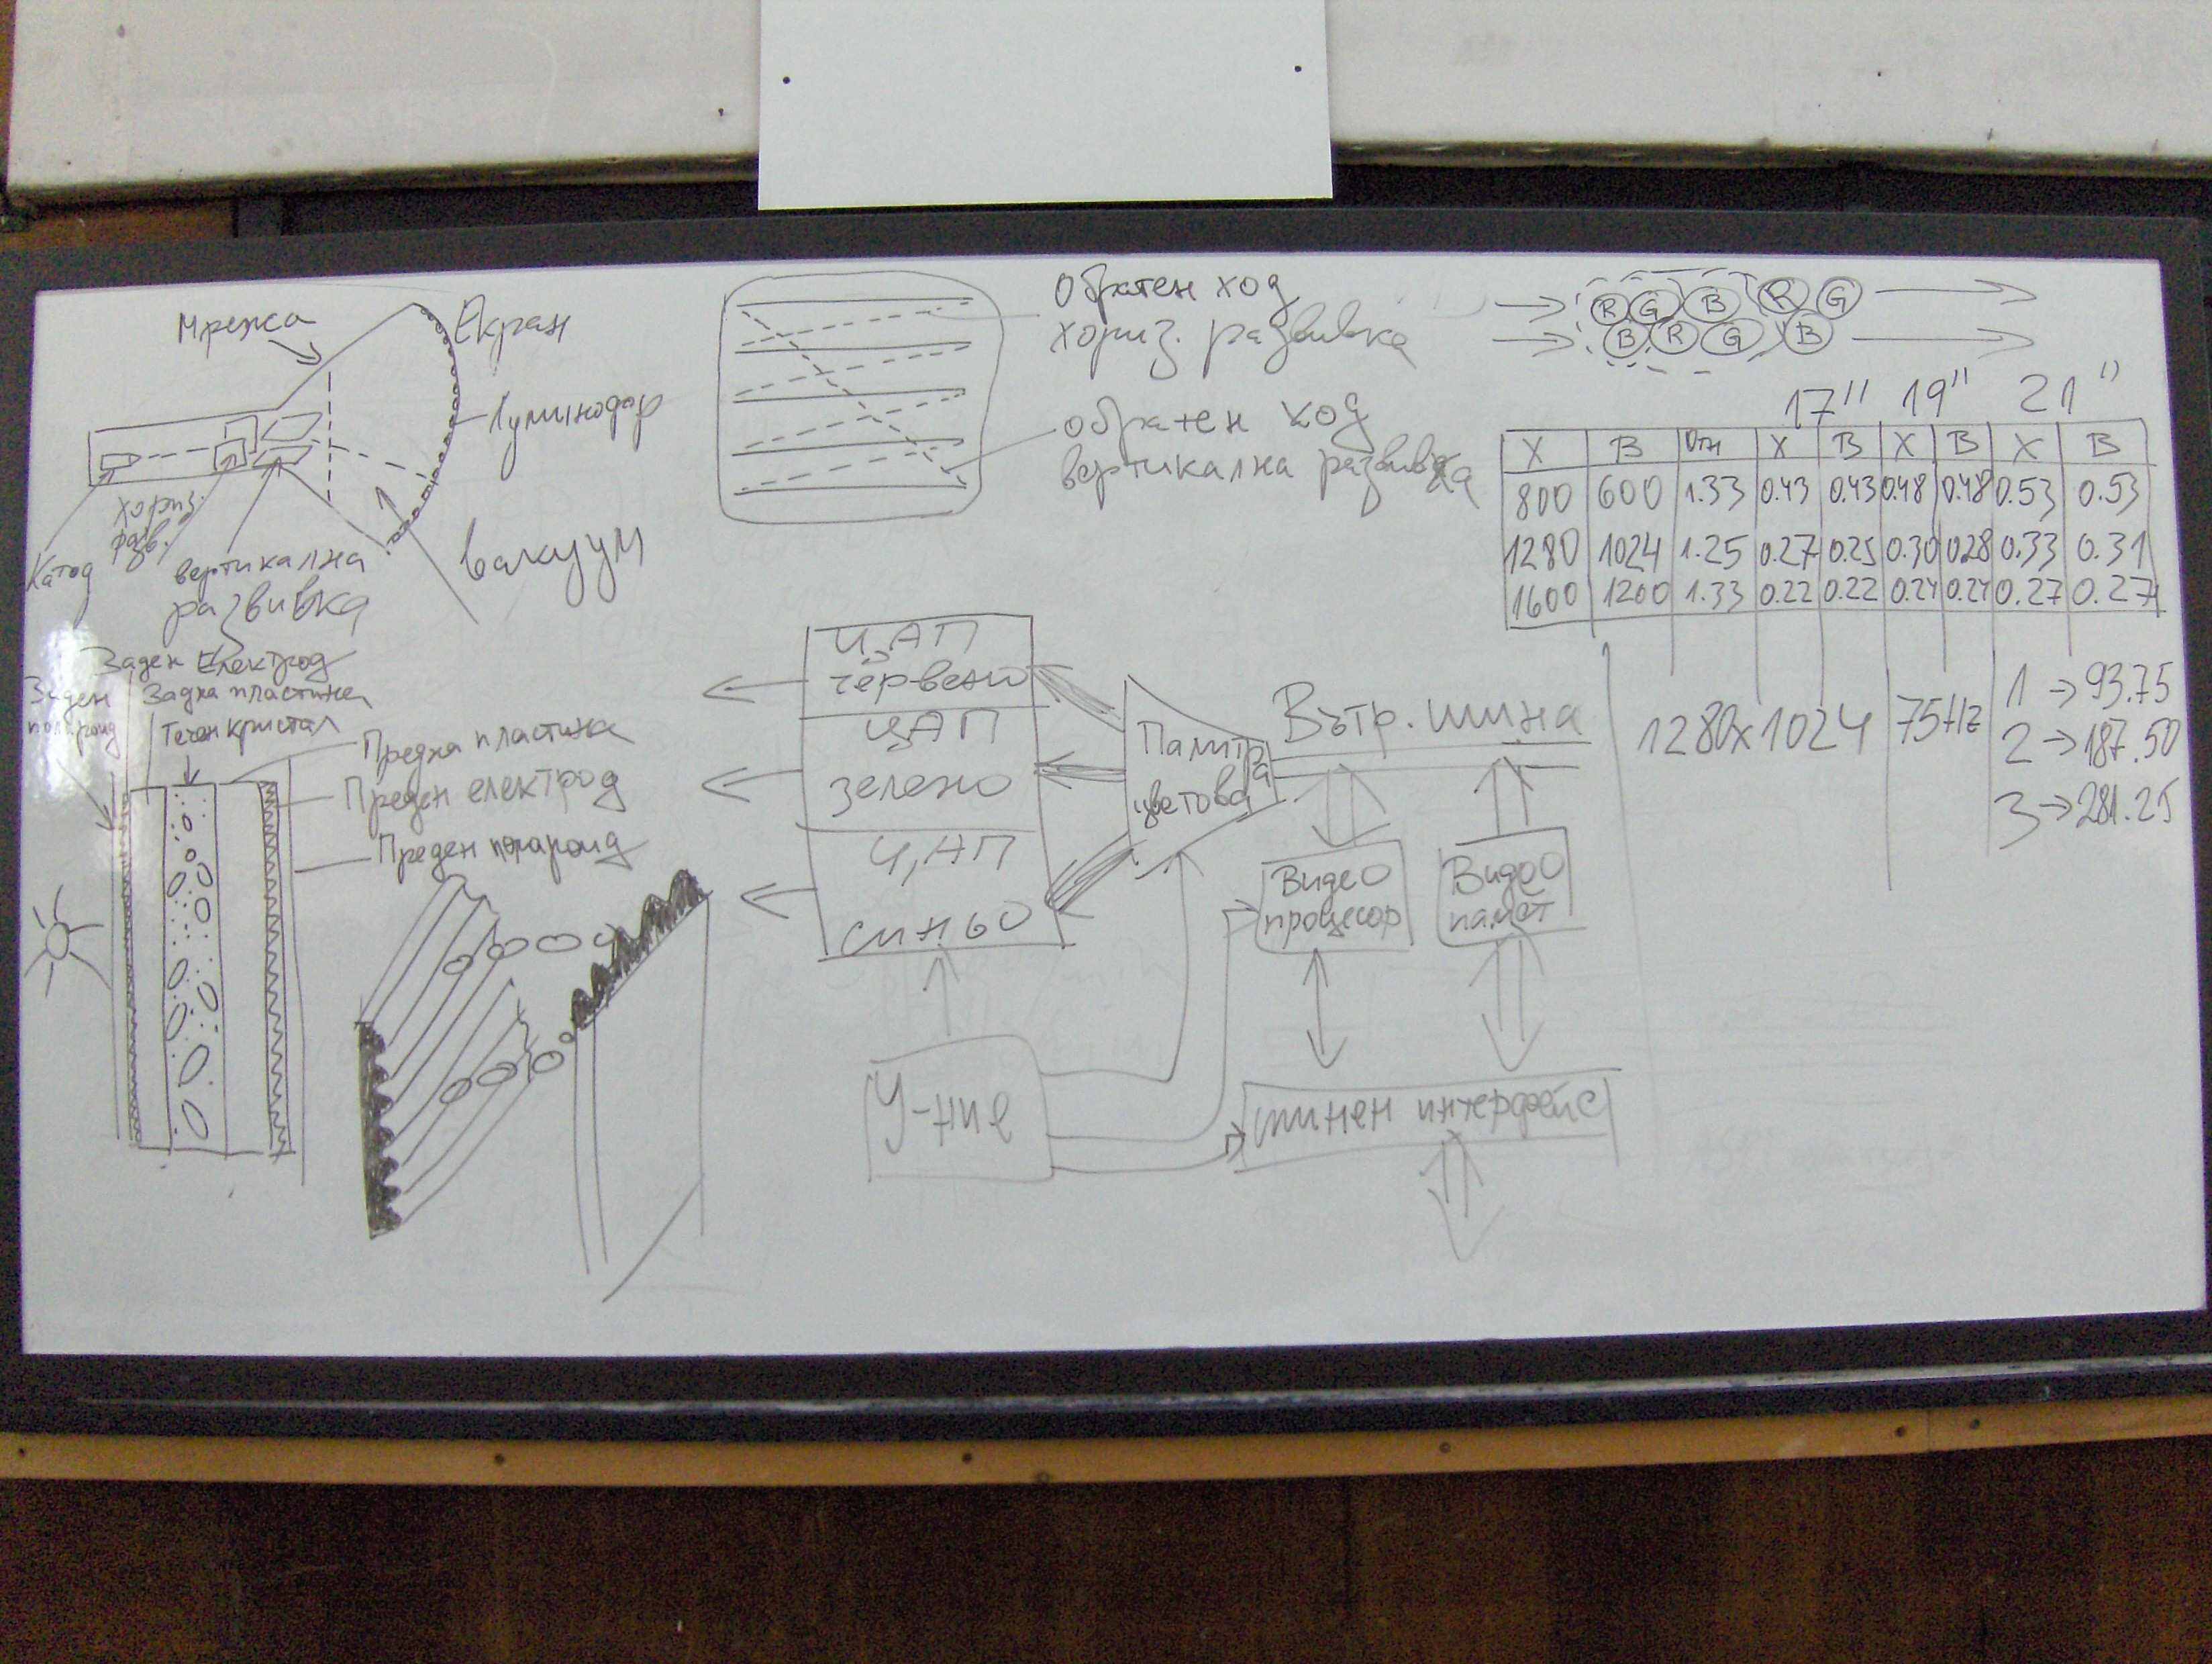 Мрежа
Екран
Луминофор
хориз.
разв.
Катод
вертикална
развивка
вакуум
обратен ход
хориз. развивка
обратен ход
вертикална развивка
R G B R G
B R G B
17" 19" 21"
X B Отн X B X B X B
800 600 1.33 0.43 0.43 0.48 0.48 0.53 0.53
1280 1024 1.25 0.27 0.25 0.30 0.28 0.33 0.31
1600 1200 1.33 0.22 0.22 0.24 0.24 0.27 0.27
1280x1024 75Hz
1 → 93.75
2 → 187.50
3 → 281.25
Заден Електрод
Заден
поляроид
Задна пластина
Течен кристал
Предна пластина
Преден електрод
Преден поляроид
ЦАП
червено
ЦАП
зелено
ЦАП
синьо
Палитра
цветова
Вътр. шина
Видео
процесор
Видео
памет
У-ние
шинен интерфейс